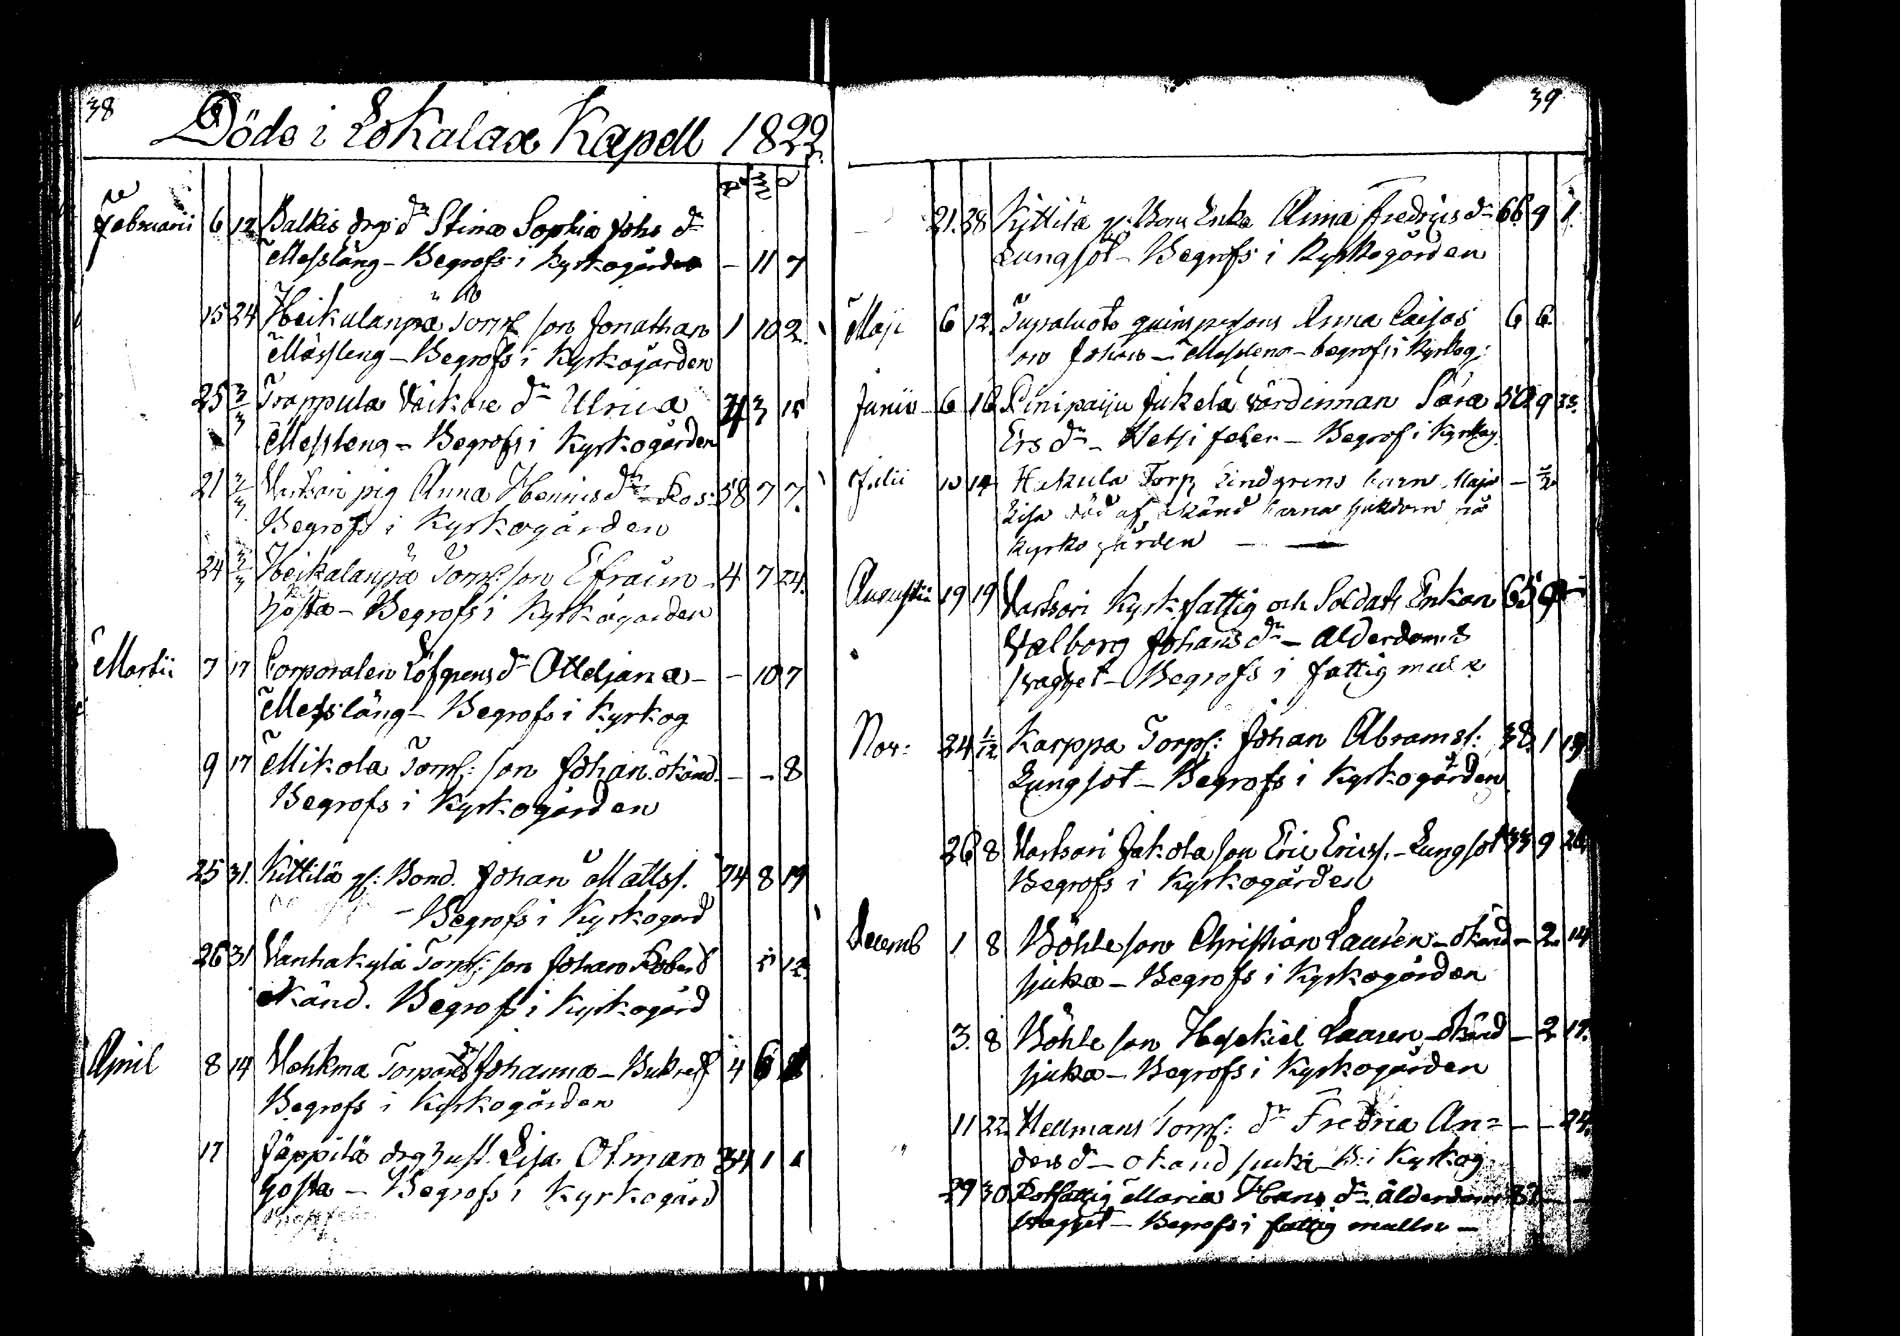 38
Döde i Lokalax Kapell 1822.
å m d
Februarii 6 12 Balkis drgs dr Stina Sophia Johs dr
Messlång - Begrofs i Kyrkogården - 11 7
15 24 Heikalanpä Torp: son Jonathan 1 10 2.
Mässleng - Begrofs i Kyrkogården
25 3/3 Trappula dr Ulrica 3 15
Messleng - Begrofs i Kyrkogården
21 3/3 Varhari pig Anna Hennis dr Ros: 58 7 7.
Begrofs i Kyrkogården
24 3/3 Heikalanpä Torp: son Efraim - 4 7 24.
hosta - Begrofs i Kyrkogården
Martii 7 17 Corporalen Löfgrens dr Otteljana - - 10 7
Messlång - Begrofs i Kyrkog
9 17 Mikola Torp: son Johan okänd. - - 8
Begrofs i Kyrkogården
25 31. Kittilä gl: Bond. Johan Matts. 74 8 19
- Begrofs i Kyrkogård
26 31 Vanhakylä Torp: son Johan Robert 5 12
okänd. Begrofs i Kyrkogård
April 8 14 Vehkma Torpares Johanna - 4 6
Begrofs i Kyrkogården
17 Jäppilä drg hust. Lisa Otman 34 1 1
hosta - Begrofs i Kyrkogård
39
21. 28 Kittilä gl: Bond Enka Anna Fredrics dr 66. 9 1.
Lungsot - Begrofs i Kyrkogården
Maji 6 12. Tupaluoto Anna Caisas 6 6
son Johan - Messleng - begrofs i Kyrkog:
Junii 6 16 Pinipaiju Jukela värdinnan Sara 50 9
Ers dr - Hetsi feber - Begrof i Kyrkog.
Julii 10 14 Hakula Torp Lindgrens barn Maja -
Lisa död af okänd barna sjukdom på
kyrkogården -
Augustii 19 19 Varhari Kyrk.fattig och Soldats Enkan 65 9 -
Valborg Johans dr - Alderdoms
svaghet - Begrofs i fattig mull
Nov: 24 1/12 Karppa Torp: Johan Abrams: 38. 1
Lungsot - Begrofs i Kyrkogården
26 8 Varhari Jakola son Eric Erics. - Lungsot 33 9
Begrofs i Kyrkogården
Decemb 1 8 Böhle son Christian Lauren - okänd - 2. 14
sjuka - Begrofs i Kyrkogården
3. 8 Böhle son Heskiel Lauren - okänd - 2 17.
sjuka - Begrofs i Kyrkogården
11 22. Hellmans Torp: dr Fredrica An= - - 24.
ders dr - okänd sjuka - B: i Kyrkog
29 30 Rotfattig Maria Hans dr ålderdoms - -
svaghet - Begrofs i fattig mullen -